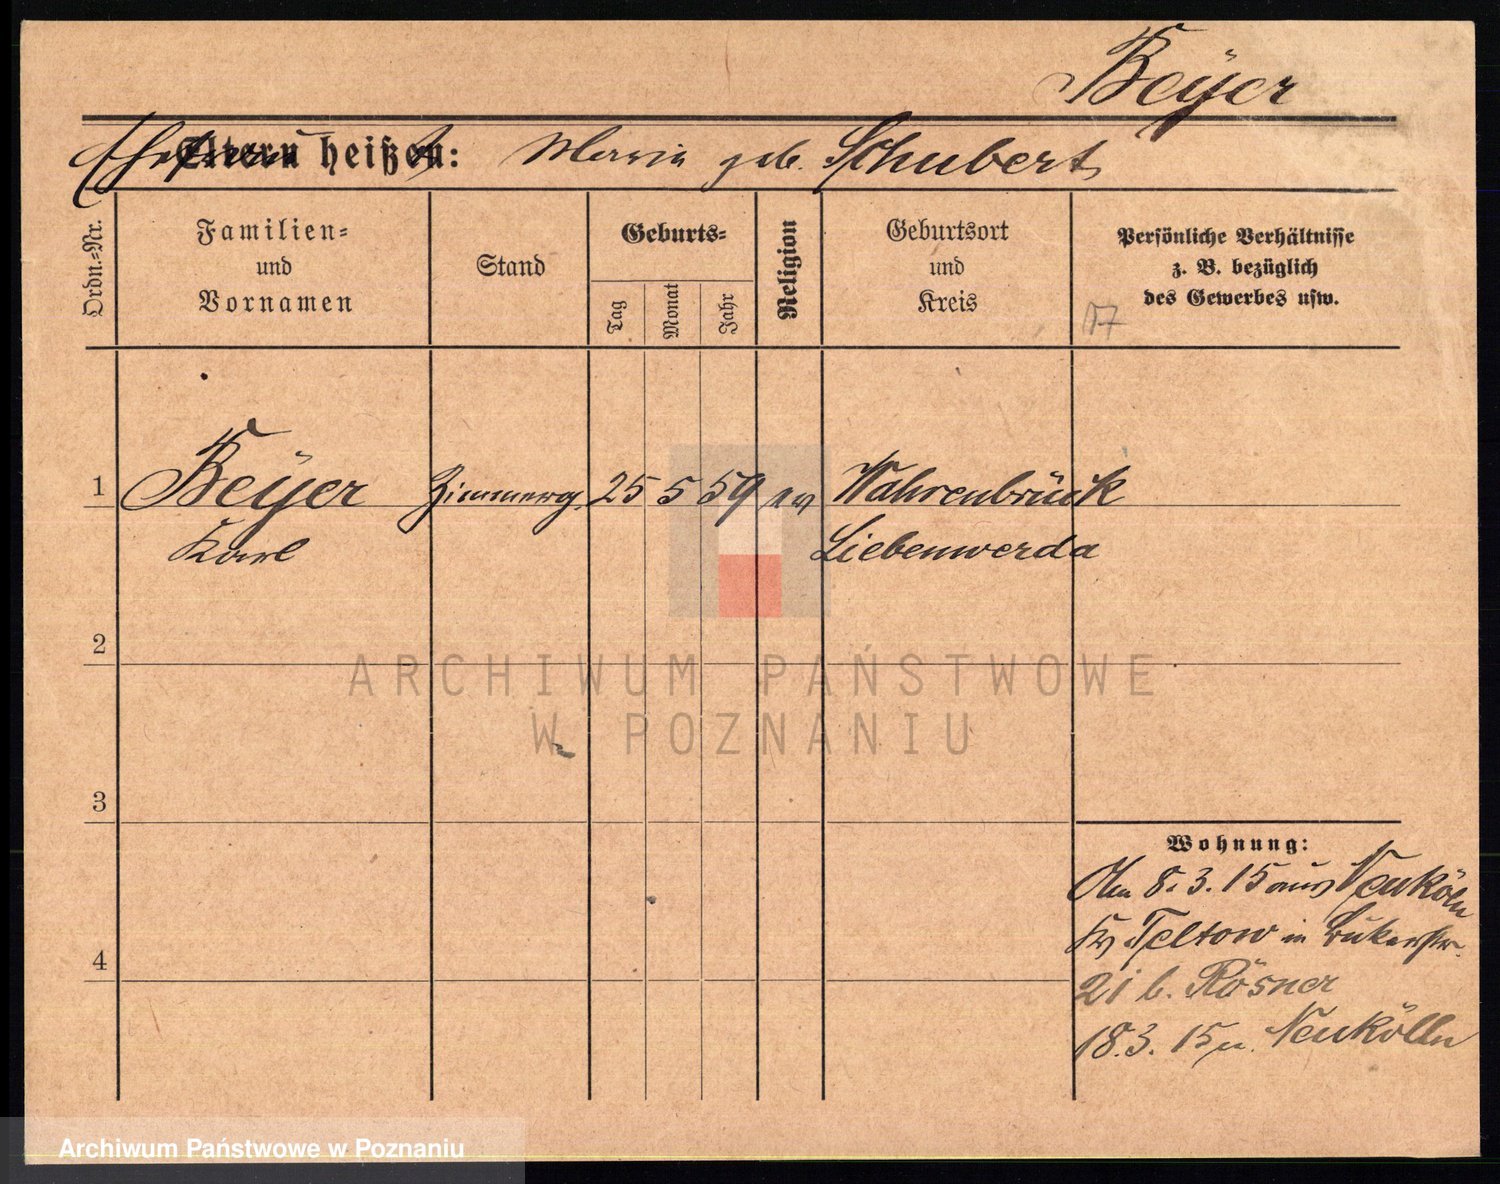 Beÿer
Ehefrau heißt: Maria geb. Schubert
Ordn.-Nr.
Familien-
und
Vornamen
Stand
Geburts-
Tag
Monat
Jahr
Religion
Geburtsort
und
Kreis
Persönliche Verhältnisse
z. B. bezüglich
des Gewerbes usw.
17
1 Beÿer Zimmerg. 25 5 59 ev Wahrenbrück
Karl Liebenwerda
2
ARCHIWUM PAŃSTWOWE
W POZNANIU
3
Wohnung:
Am 8.3.15 aus Neukölln
Kr Teltow in
4
21 b. Rösner
18.3.15 n. Neukölln
Archiwum Państwowe w Poznaniu